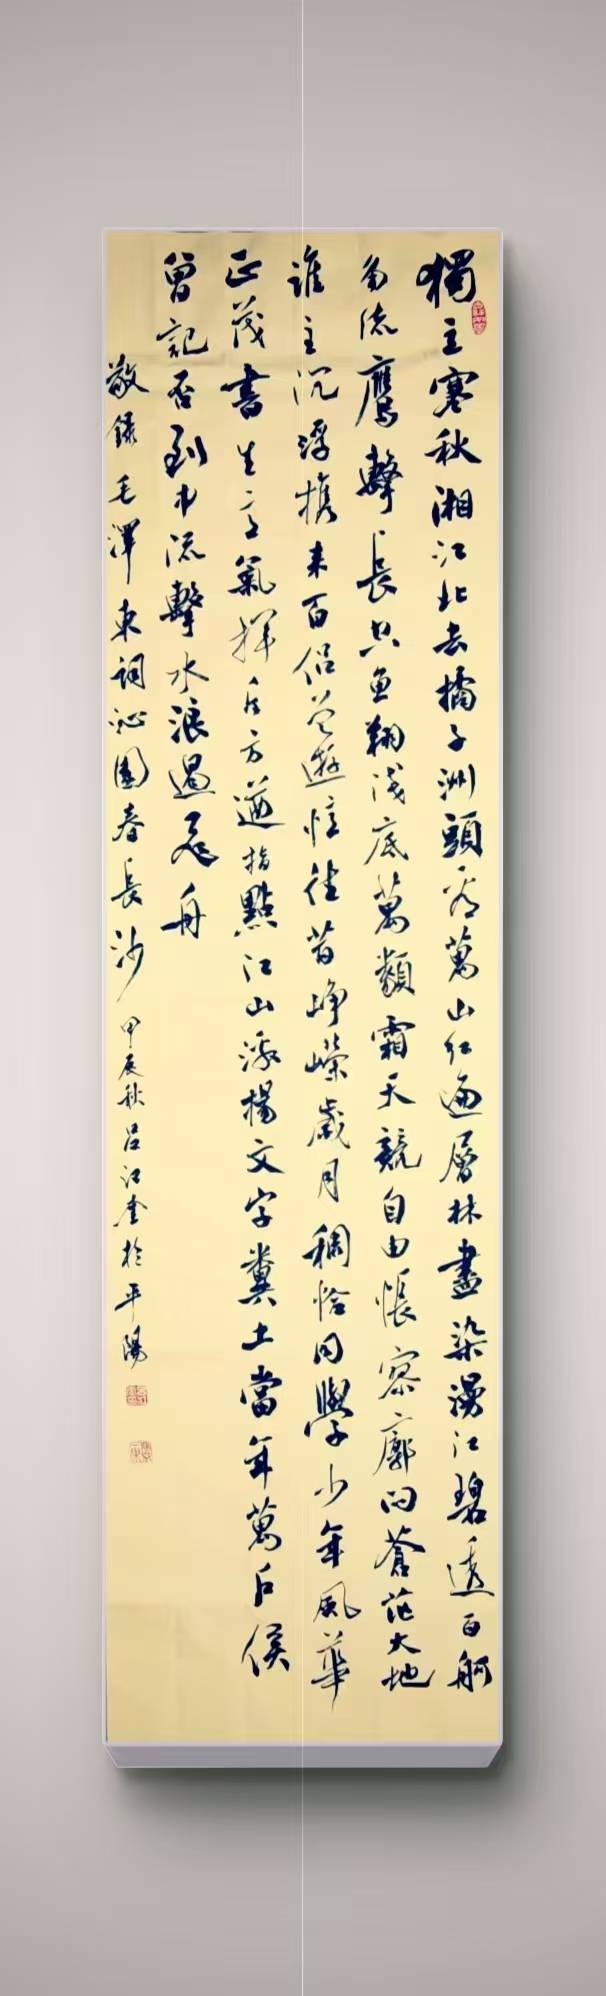 獨立寒秋湘江北去橘子洲頭看萬山红遍層林盡染漫江碧透百舸
爭流鷹擊長空魚翔淺底萬類霜天競自由悵寥廓問蒼茫大地
誰主沉浮携來百侣曾遊憶往昔崢嶸歲月稠恰同學少年風華
正茂書生意氣揮斥方遒指點江山激揚文字糞土當年萬户侯
曾記否到中流擊水浪遏飛舟
敬錄毛澤東詞沁園春長沙 甲辰秋吕江奎於平陽